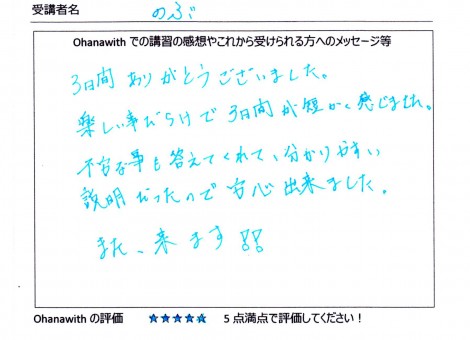 受講者名 のぶ
Ohanawith での講習の感想やこれから受けられる方へのメッセージ等
3日間 ありがとうございました。
楽しい事だらけで 3日間が短かく感じました。
不安な事も答えてくれて、分かりやすい
説明だったので 安心出来ました。
また、来ます!!
Ohanawith の評価 ★★★★★ 5 点満点で評価してください!